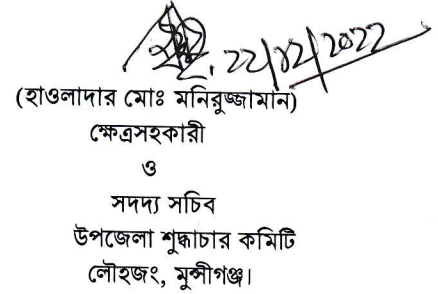 22/12/2022
(হাওলাদার মোঃ মনিরুজ্জামান)
ক্ষেত্রসহকারী
ও
সদদ্য সচিব
উপজেলা শুদ্ধাচার কমিটি
লৌহজং, মুন্সীগঞ্জ।